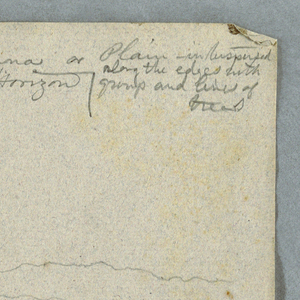 na or Plain interspersed
along the edges with
Horizon groups and lines of
trees